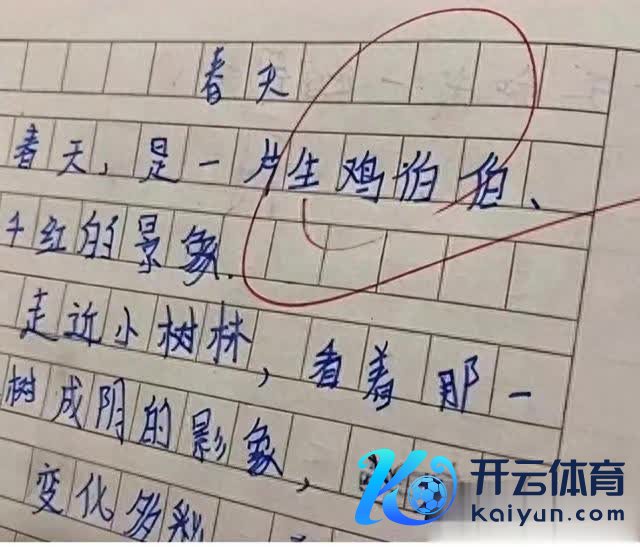 春天
春天,是一片生鸡伯伯、
千红的景象.
走近小树林,看着那一
树成阴的影象,
变化多
开云体育
kaiyun.com